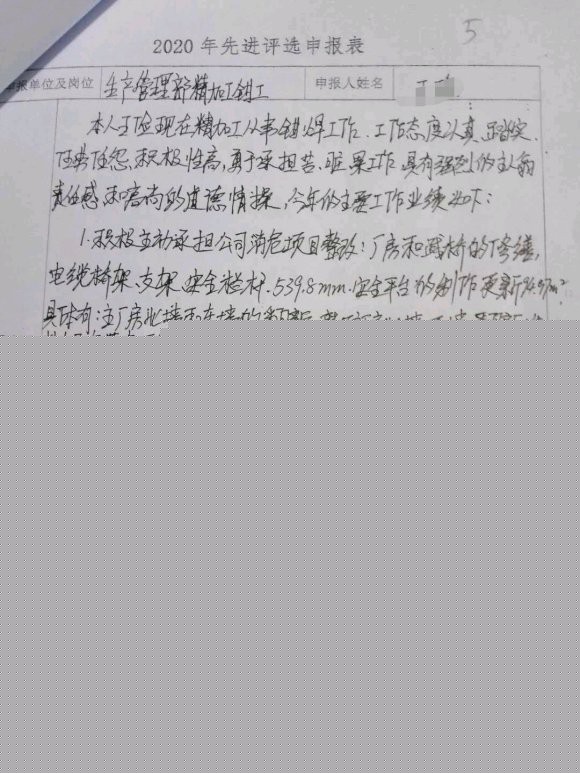 5
2020年先进评选申报表
申报单位及岗位 生产管理部精加工钳工 申报人姓名
本人王俭现在精加工从事钳焊工作、工作态度认真、踏实、
任劳任怨、积极性高,勇于承担苦、脏、累工作,具有强烈的主人翁
责任感和高尚的道德情操,今年的主要工作业绩如下:
1.积极主动承担公司消危项目整改:厂房和
电缆桥架、支架、安全栏杆.539.8mm.安全平台的制作更新74.97m²
具体有:主厂房北墙